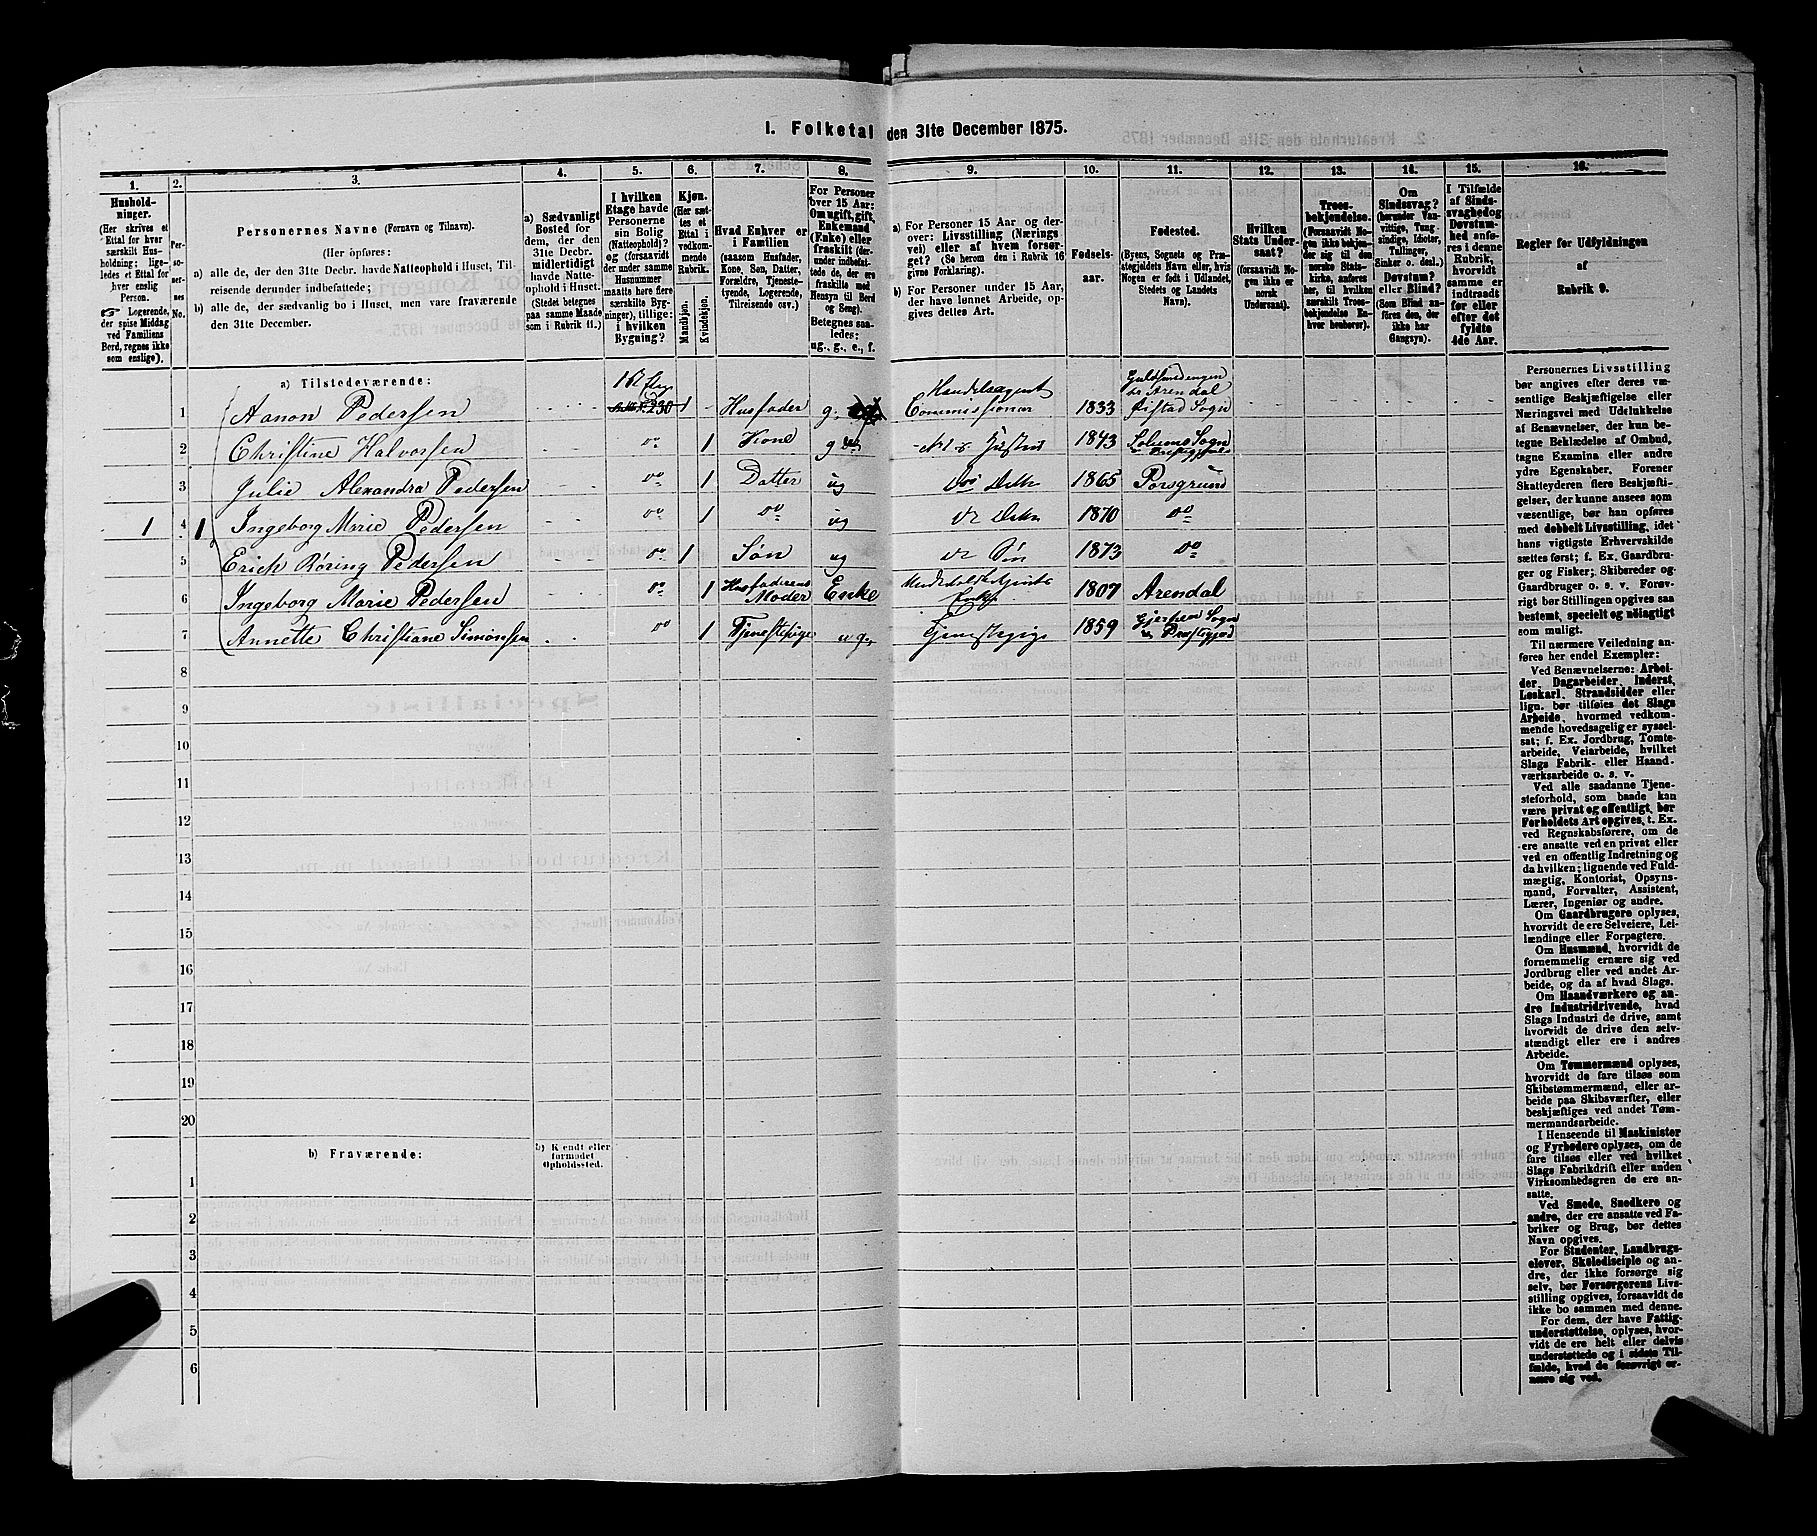 1. Folketal den 31te December 1875.
1. 2. 3. 4. 5. 6. 7. 8. 9. 10. 11. 12. 13. 14. 15. 16.
Hushold-
ninger.
(Her skrives et
Ettal for hver
særskilt Hus-
holdning; lige-
ledes et Ettal for
hver enslig
Person.
☞ Logerende,
der spise Middag
ved Familiens
Bord, regnes ikke
som enslige).
Per-
so-
ner-
nes
No.
Personernes Navne (Fornavn og Tilnavn).
(Her opføres:
a) alle de, der den 31te Decbr. havde Natteophold i Huset, Til-
reisende derunder indbefattede;
b) alle de, der sædvanlig bo i Huset, men vare fraværende
den 31te December.
a) Sædvanligt
Bosted for
dem, der den
31te Decbr.
midlertidigt
havde Natte-
ophold i Huset.
(Stedet betegnes
paa samme Maade
som i Rubrik 11.)
I hvilken
Etage havde
Personerne
sin Bolig
(Natteophold)?
og (forsaavidt
der under samme
Husnummer
maatte høre flere
særskilte Byg-
ninger), tillige:
i hvilken
Bygning?
Kjøn.
(Her sæt-
tes et
Ettal i
vedkom-
mende
Rubrik.
Mandkjøn.
Kvindekjøn.
Hvad Enhver er
i Familien
(saasom Husfader,
Kone, Søn, Datter,
Forældre, Tjeneste-
tyende, Logerende,
Tilreisende osv.)
For Personer
over 15 Aar:
Om ugift, gift,
Enkemand
(Enke) eller
fraskilt (der-
under indbefat-
tede de, der ere
fraskilte med
Hensyn til Bord
og Seng).
Betegnes saa-
ledes:
ug., g., e., f.
a) For Personer 15 Aar og der-
over: Livsstilling (Nærings
vei) eller af hvem forsør-
get? (Se herom den i Rubrik 16
givne Forklaring).
b) For Personer under 15 Aar,
der have lønnet Arbeide, op-
gives dettes Art.
Fødsels-
aar.
Fødested.
(Byens, Sognets og Præ-
stegjeldets Navn eller, hvis
Nogen er født i Udlandet,
Stedets og Landets
Navn).
Hvilken
Stats Under-
saat?
(forsaavidt No-
gen ikke er
norsk
Undersaat).
Troes-
bekjendelse.
(Forsaavidt No-
gen ikke bekjen-
der sig til den
norske Stats-
kirke, anføres
her, til hvilken
særskilt Troes-
bekjendelse En-
hver henhører).
Om
Sindssvag?
(herunder Van-
vittige, Tung-
sindige, Idioter,
Tullinger,
Sinker o. desl.)
Døvstum?
eller Blind?
(Som Blind an-
føres den, der
ikke har
Gangsyn).
I Tilfælde
af Sinds-
svaghed og
Døvstum-
hed anfø-
res i denne
Rubrik,
hvorvidt
samme er
indtraadt
før eller
efter det
fyldte
4de Aar.
Regler for Udfyldningen
af
Rubrik 9.
a) Tilstedeværende:
1 Aanon Pedersen 230 1 Husfader g. Handelsagent Commissionær 1833 Øistad Sogn
2 Christine Halvorsen do 1 Kone g 1843 Solums Sogn
3 Julie Alexandra Pedersen do 1 Datter ug 1865 Porsgrund
1 1 4 Ingeborg Marie Pedersen do 1 do ug 1870 do
5 Erich Röring Pedersen do 1 Søn ug Søn 1873 do
6 Ingeborg Marie Pedersen do 1 Husfaderens Moder Enke Enke 1807 Arendal
7 Annette Christiane Simonsen do 1 Tjenestepige ug. Tjenestepige 1859 Gjerpen Sogn
8
9
10
11
12
13
14
15
16
17
18
19
20
b) Fraværende:
b) Kjendt eller
formodet
Opholdssted.
1
2
3
4
5
6
Personernes Livsstilling
bør angives efter deres væ-
sentlige Beskjæftigelse eller
Næringsvei med Udelukkelse
af Benævnelser, der kun be-
tegne Beklædelse af Ombud,
tagne Examina eller andre
ydre Egenskaber. Forener
Skatteyderen flere Beskjæfti-
gelser, der kunne ansees som
væsentlige, bør han opføres
med dobbelt Livsstilling, idet
hans vigtigste Erhvervskilde
sættes først; f. Ex. Gaardbru-
ger og Fisker; Skibsreder og
Gaardbruger o. s. v. Forøv-
rigt bør Stillingen opgives saa
bestemt, specielt og nøiagtigt
som muligt.
Til nærmere Veiledning an-
føres her endel Exempler:
Ved Benævnelserne: Arbei-
der, Dagarbeider, Inderst,
Løskarl, Strandsidder eller
lign. bør tilføies det Slags
Arbeide, hvormed vedkom-
mende hovedsagelig er syssel-
sat; f. Ex. Jordbrug, Tomte-
arbeide, Veiarbeide, hvilket
Slags Fabrik- eller Haand-
værksarbeide o. s. v.
Ved alle saadanne Tjene-
steforhold, som baade kan
være privat og offentligt, bør
Forholdets Art opgives, t. Ex.
ved Regnskabsførere, om de
ere ansatte ved en privat eller
ved en offentlig Indretning og
da hvilken; lignende ved Fuld-
mægtig, Kontorist, Opsyns-
mand, Forvalter, Assistent,
Lærer, Ingeniør og andre.
Om Gaardbrugere oplyses,
hvorvidt de ere Selveiere, Lei-
lændinge eller Forpagtere.
Om Husmænd, hvorvidt de
fornemmelig ernære sig ved
Jordbrug eller ved andet Ar-
beide, og da af hvad Slags.
Om Haandværkere og an-
dre Industridrivende, hvad
Slags Industri de drive, samt
hvorvidt de drive den selv-
stændigt eller ere i andres
Arbeide.
Om Tømmermænd oplyses,
hvorvidt de fare tilsøs som
Skibstømmermænd, eller ar-
beide paa Skibsværfter, eller
beskjæftiges ved andet Tøm-
mermandsarbeide.
I Henseende til Maskinister
og Fyrbødere oplyses, om de
fare tilsøs eller ved hvilket
Slags Fabrikdrift eller anden
Virksomhedsgren de ere an-
satte.
Ved Smede, Snedkere og
andre, der ere ansatte ved Fa-
briker og Brug, bør dettes
Navn opgives.
For Studenter, Landbrugs-
elever, Skoledisciple og an-
dre, der ikke forsørge sig
selv, bør Forsørgerens Livs-
stilling opgives, forsaavidt de
ikke bo sammen med denne.
For dem, der have Fattig-
understøttelse, oplyses, hvor-
vidt de ere helt eller delvis
understøttede og i sidste Til-
fælde, hved de forøvrigt er-
nære sig ved.